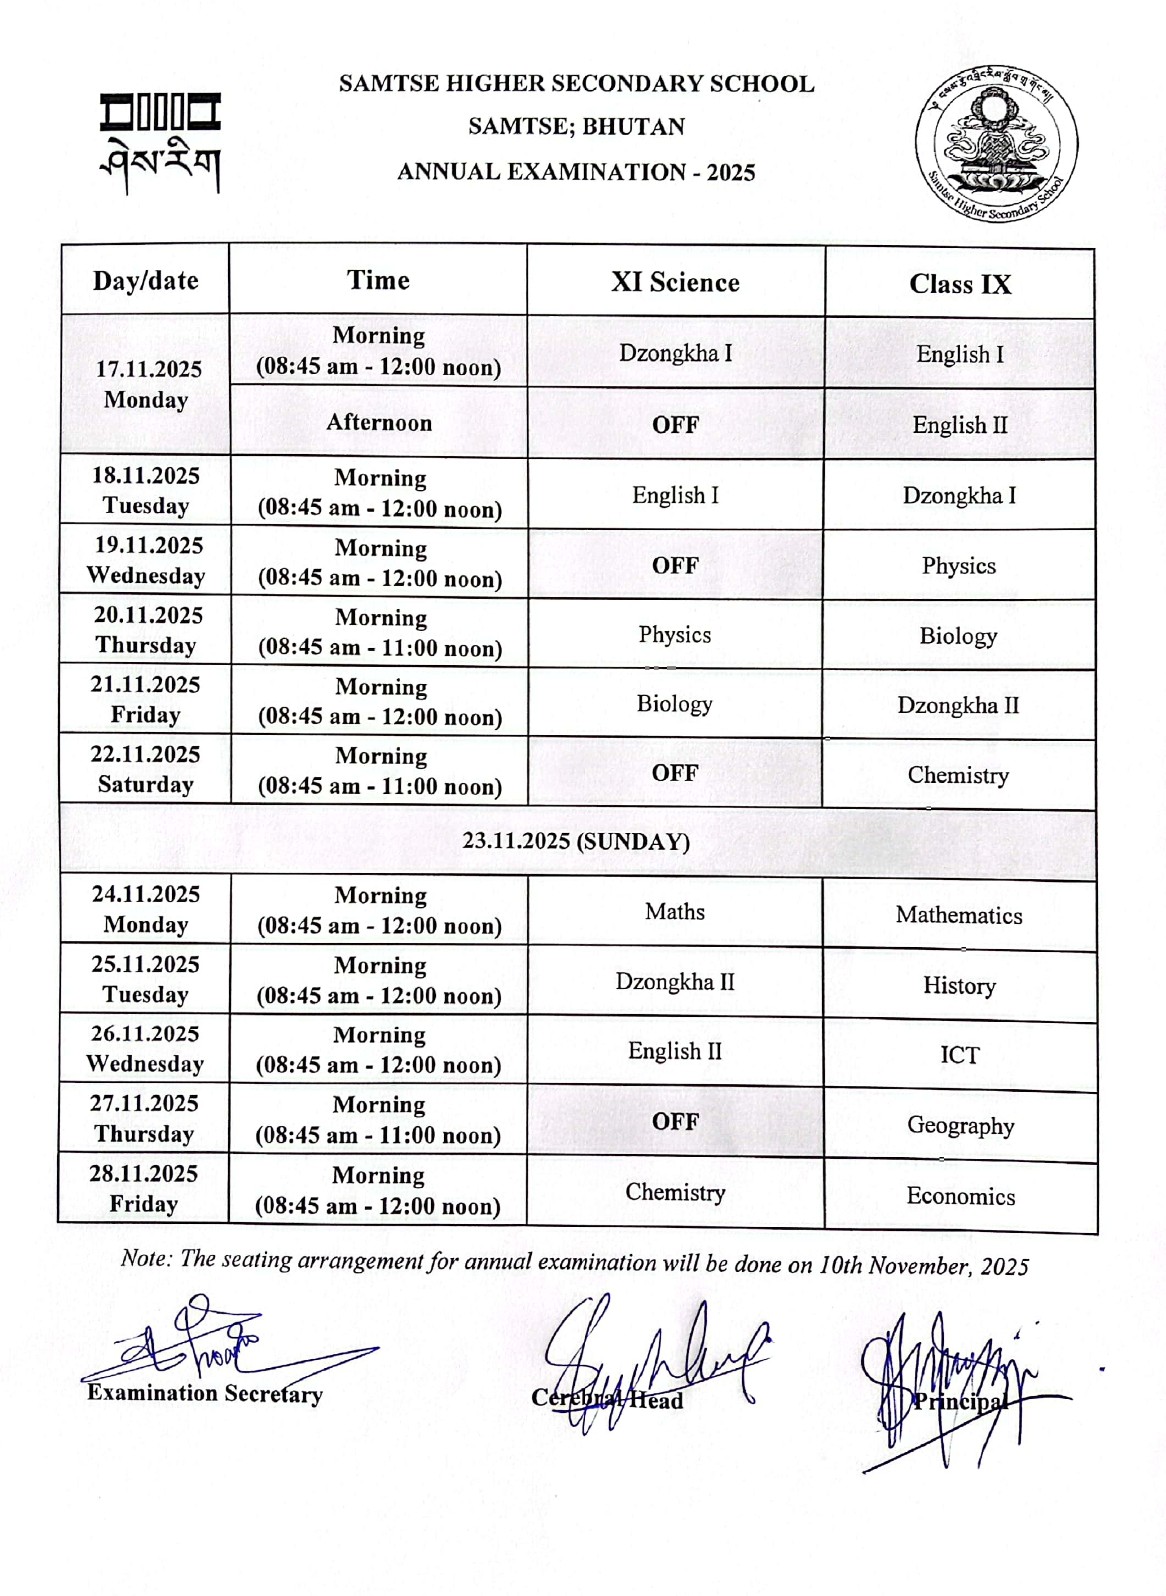 SAMTSE HIGHER SECONDARY SCHOOL
SAMTSE; BHUTAN
ANNUAL EXAMINATION - 2025
ཤེས་རིག
Samtse Higher Secondary School
Day/date Time XI Science Class IX
17.11.2025 Monday Morning (08:45 am - 12:00 noon) Dzongkha I English I
Afternoon OFF English II
18.11.2025 Tuesday Morning (08:45 am - 12:00 noon) English I Dzongkha I
19.11.2025 Wednesday Morning (08:45 am - 12:00 noon) OFF Physics
20.11.2025 Thursday Morning (08:45 am - 11:00 noon) Physics Biology
21.11.2025 Friday Morning (08:45 am - 12:00 noon) Biology Dzongkha II
22.11.2025 Saturday Morning (08:45 am - 11:00 noon) OFF Chemistry
23.11.2025 (SUNDAY)
24.11.2025 Monday Morning (08:45 am - 12:00 noon) Maths Mathematics
25.11.2025 Tuesday Morning (08:45 am - 12:00 noon) Dzongkha II History
26.11.2025 Wednesday Morning (08:45 am - 12:00 noon) English II ICT
27.11.2025 Thursday Morning (08:45 am - 11:00 noon) OFF Geography
28.11.2025 Friday Morning (08:45 am - 12:00 noon) Chemistry Economics
Note: The seating arrangement for annual examination will be done on 10th November, 2025
Examination Secretary Cerebral Head Principal